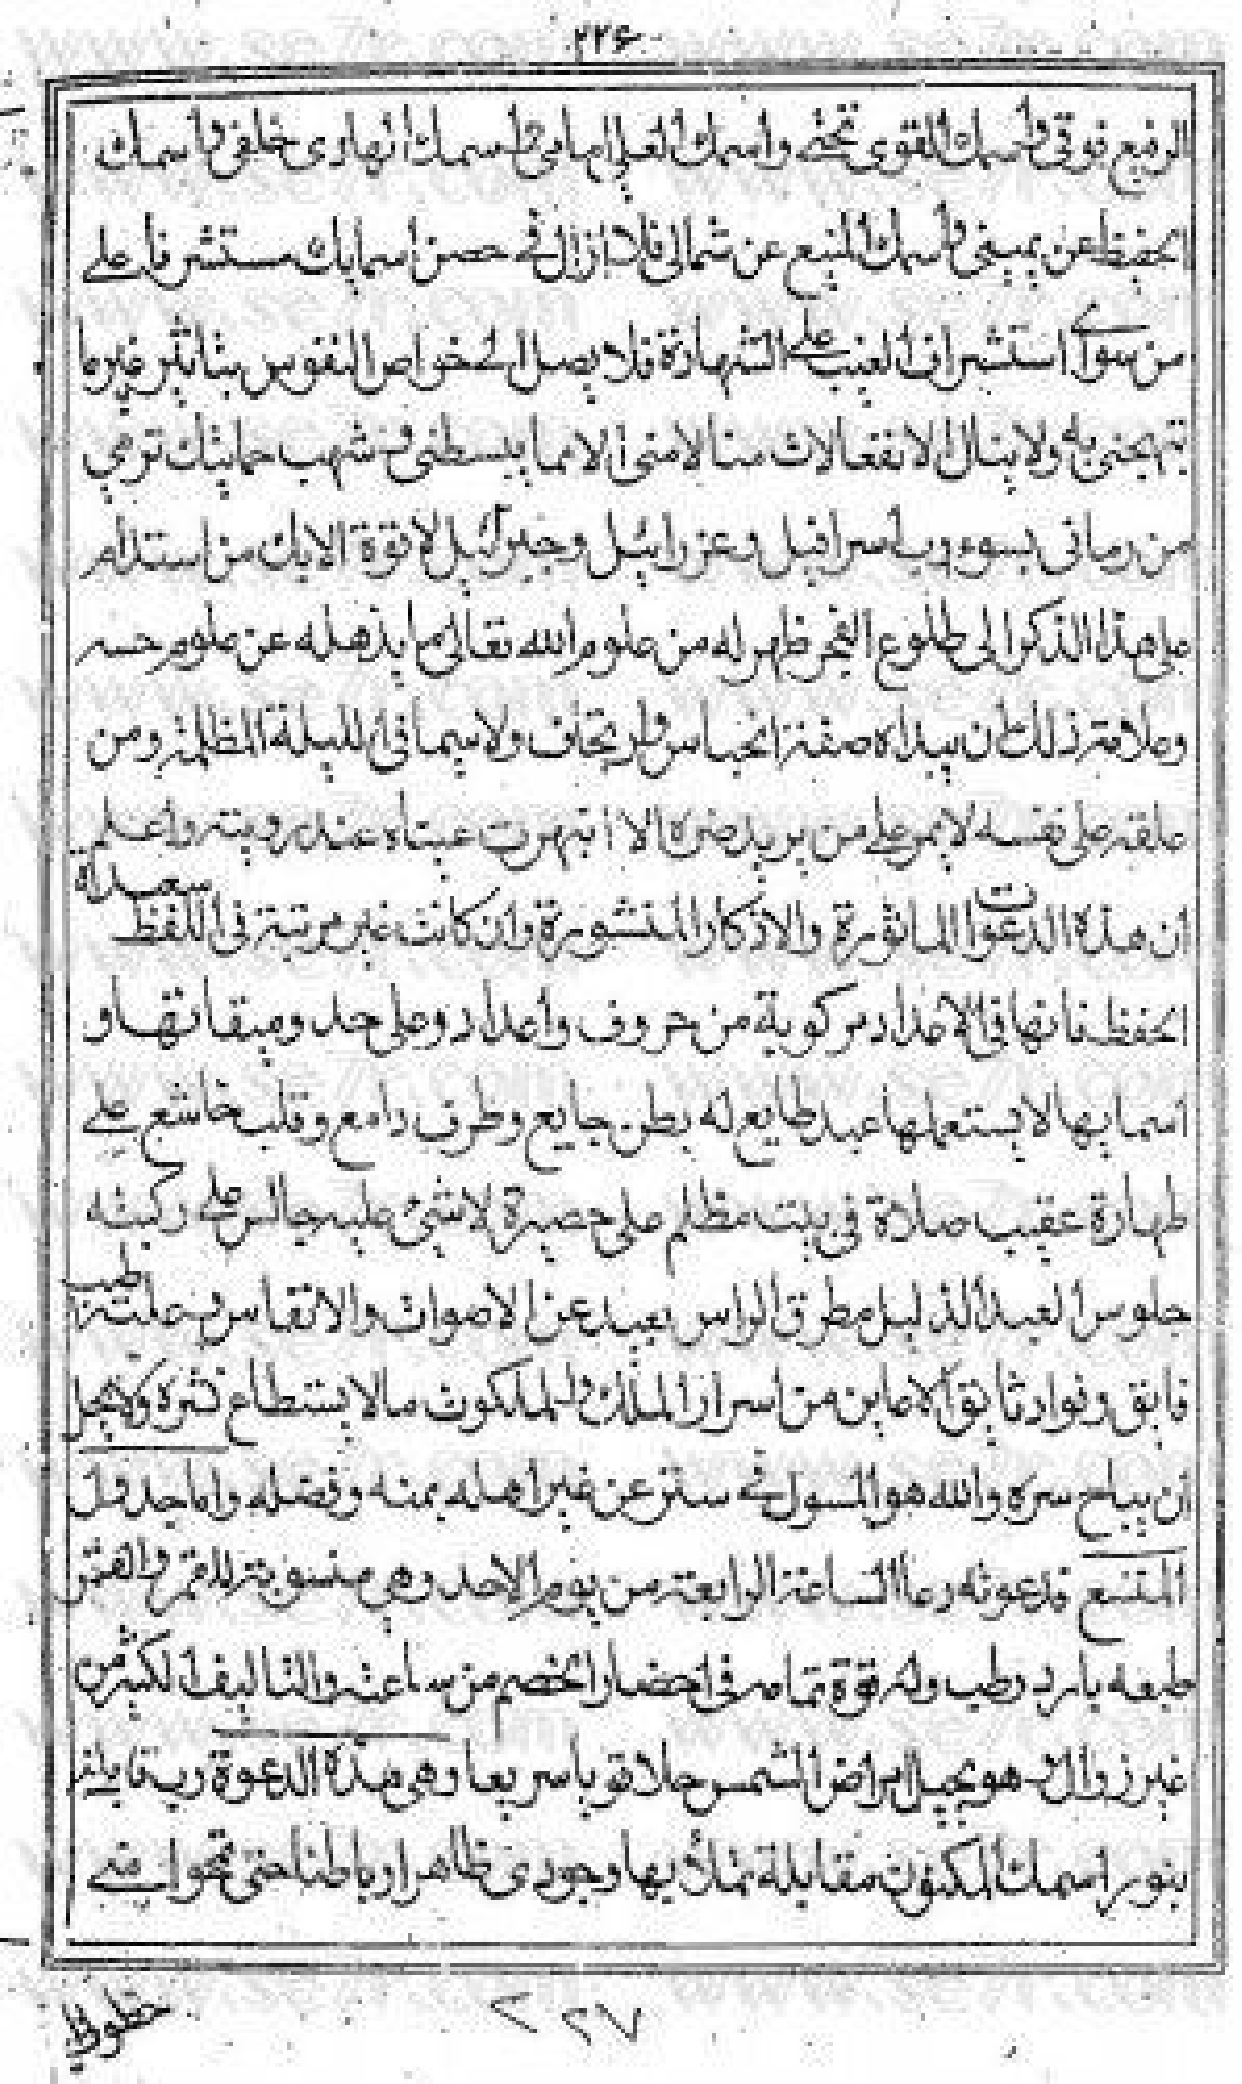 ٢٢٦
الرفيع فوقي واسمك القوي تحتي واسمك العلي امامي واسمك الهادي خلفي واسمك
الحفيظ عن يميني واسمك المنيع عن شمالي فلا ازال في حصن اسمايك مستشرفا على
من سواي استشراف الغيب على الشهادة فلا يصل الى خواص النفوس بتاثير غيرما
تهيجني به ولا ينال الانفعالات منالا مني الا مما يبسطني من شهب حمايتك ترمي
من رماني بسوء ويا اسرافيل وعزرائيل وجبرائيل لا قوة الا بك من استدام
على هذا الذكر الى طلوع الفجر ظهر له من علوم الله تعالى ما يذهله عن علوم حسه
وعلامة ذلك ان يبداه صفة انحباس ولا سيما في الليلة المظلمة ومن
علقه على نفسه لا يمر على من يريد ضره الا انبهرت عيناه عند رويته واعلم
سعيدة
ان هذه الدعوات الماثورة والاذكار المنشورة وان كانت غير مرتبة في اللفظ
الحفظ فانها في الاعداد مركوبة من حروف واعداد وعلى حد وميقاتها و
اسمايها لا يستعملها عبد طايع له بطن جايع وطرف دامع وقلب خاشع على
طهارة عقيب صلاة في بيت مظلم على حصيرة لا شيئ عليه جالس على ركبته
طيب
جلوس العبد الذليل مطرق الراس بعيد عن الاصوات والانفاس
فايق الا عاين من اسرار الملك والملكوت ما لا يستطاع نشره ولا يحل
ان يباح سره والله هو المسول في ستر عن غير اهله بمنه وفضله واما جدول
المتسع فدعوته دعا الساعة الرابعة من يوم الاحد وهي منسوبة للقمر والقمر
طبعه بارد رطب وله قوة تمامه في احضار الخصم من ساعته والتاليف لكثير من
غير زوال هو يحيل امراض الشمس حلا قويا سريعا وهي هذه الدعوة رب قابلني
بنور اسمك المكنون مقابلة تملأ بها وجودي ظاهرا وباطنا حتى تمحوا مني
حظوظ
٢٢٧